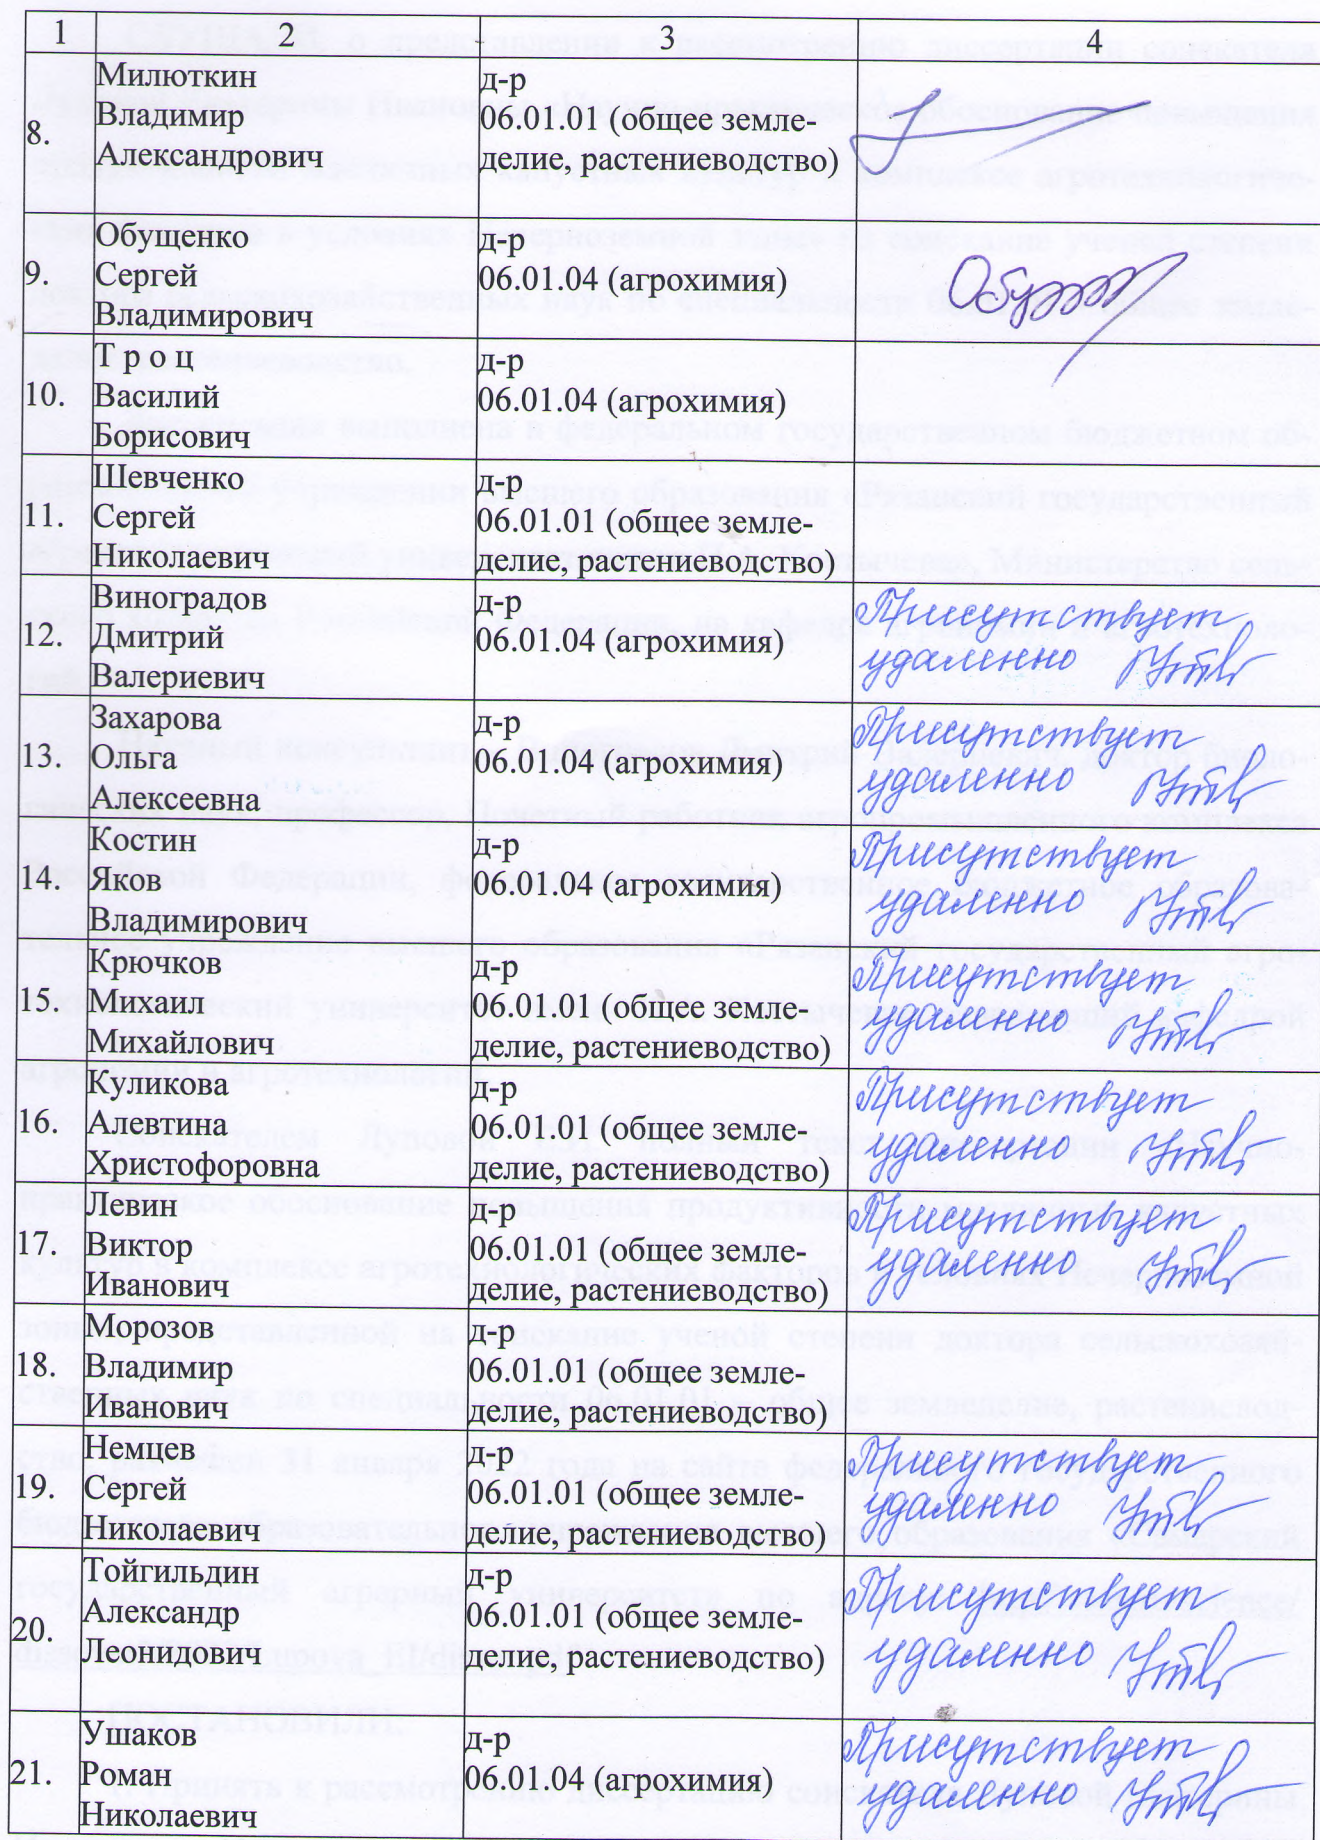 1 2 3 4
8. Милюткин Владимир Александрович
д-р
06.01.01 (общее земле-
делие, растениеводство)
9. Обущенко Сергей Владимирович
д-р
06.01.04 (агрохимия)
10. Т р о ц Василий Борисович
д-р
06.01.04 (агрохимия)
11. Шевченко Сергей Николаевич
д-р
06.01.01 (общее земле-
делие, растениеводство)
12. Виноградов Дмитрий Валериевич
д-р
06.01.04 (агрохимия)
Присутствует
удаленно
13. Захарова Ольга Алексеевна
д-р
06.01.04 (агрохимия)
Присутствует
удаленно
14. Костин Яков Владимирович
д-р
06.01.04 (агрохимия)
Присутствует
удаленно
15. Крючков Михаил Михайлович
д-р
06.01.01 (общее земле-
делие, растениеводство)
Присутствует
удаленно
16. Куликова Алевтина Христофоровна
д-р
06.01.01 (общее земле-
делие, растениеводство)
Присутствует
удаленно
17. Левин Виктор Иванович
д-р
06.01.01 (общее земле-
делие, растениеводство)
Присутствует
удаленно
18. Морозов Владимир Иванович
д-р
06.01.01 (общее земле-
делие, растениеводство)
19. Немцев Сергей Николаевич
д-р
06.01.01 (общее земле-
делие, растениеводство)
Присутствует
удаленно
20. Тойгильдин Александр Леонидович
д-р
06.01.01 (общее земле-
делие, растениеводство)
Присутствует
удаленно
21. Ушаков Роман Николаевич
д-р
06.01.04 (агрохимия)
Присутствует
удаленно